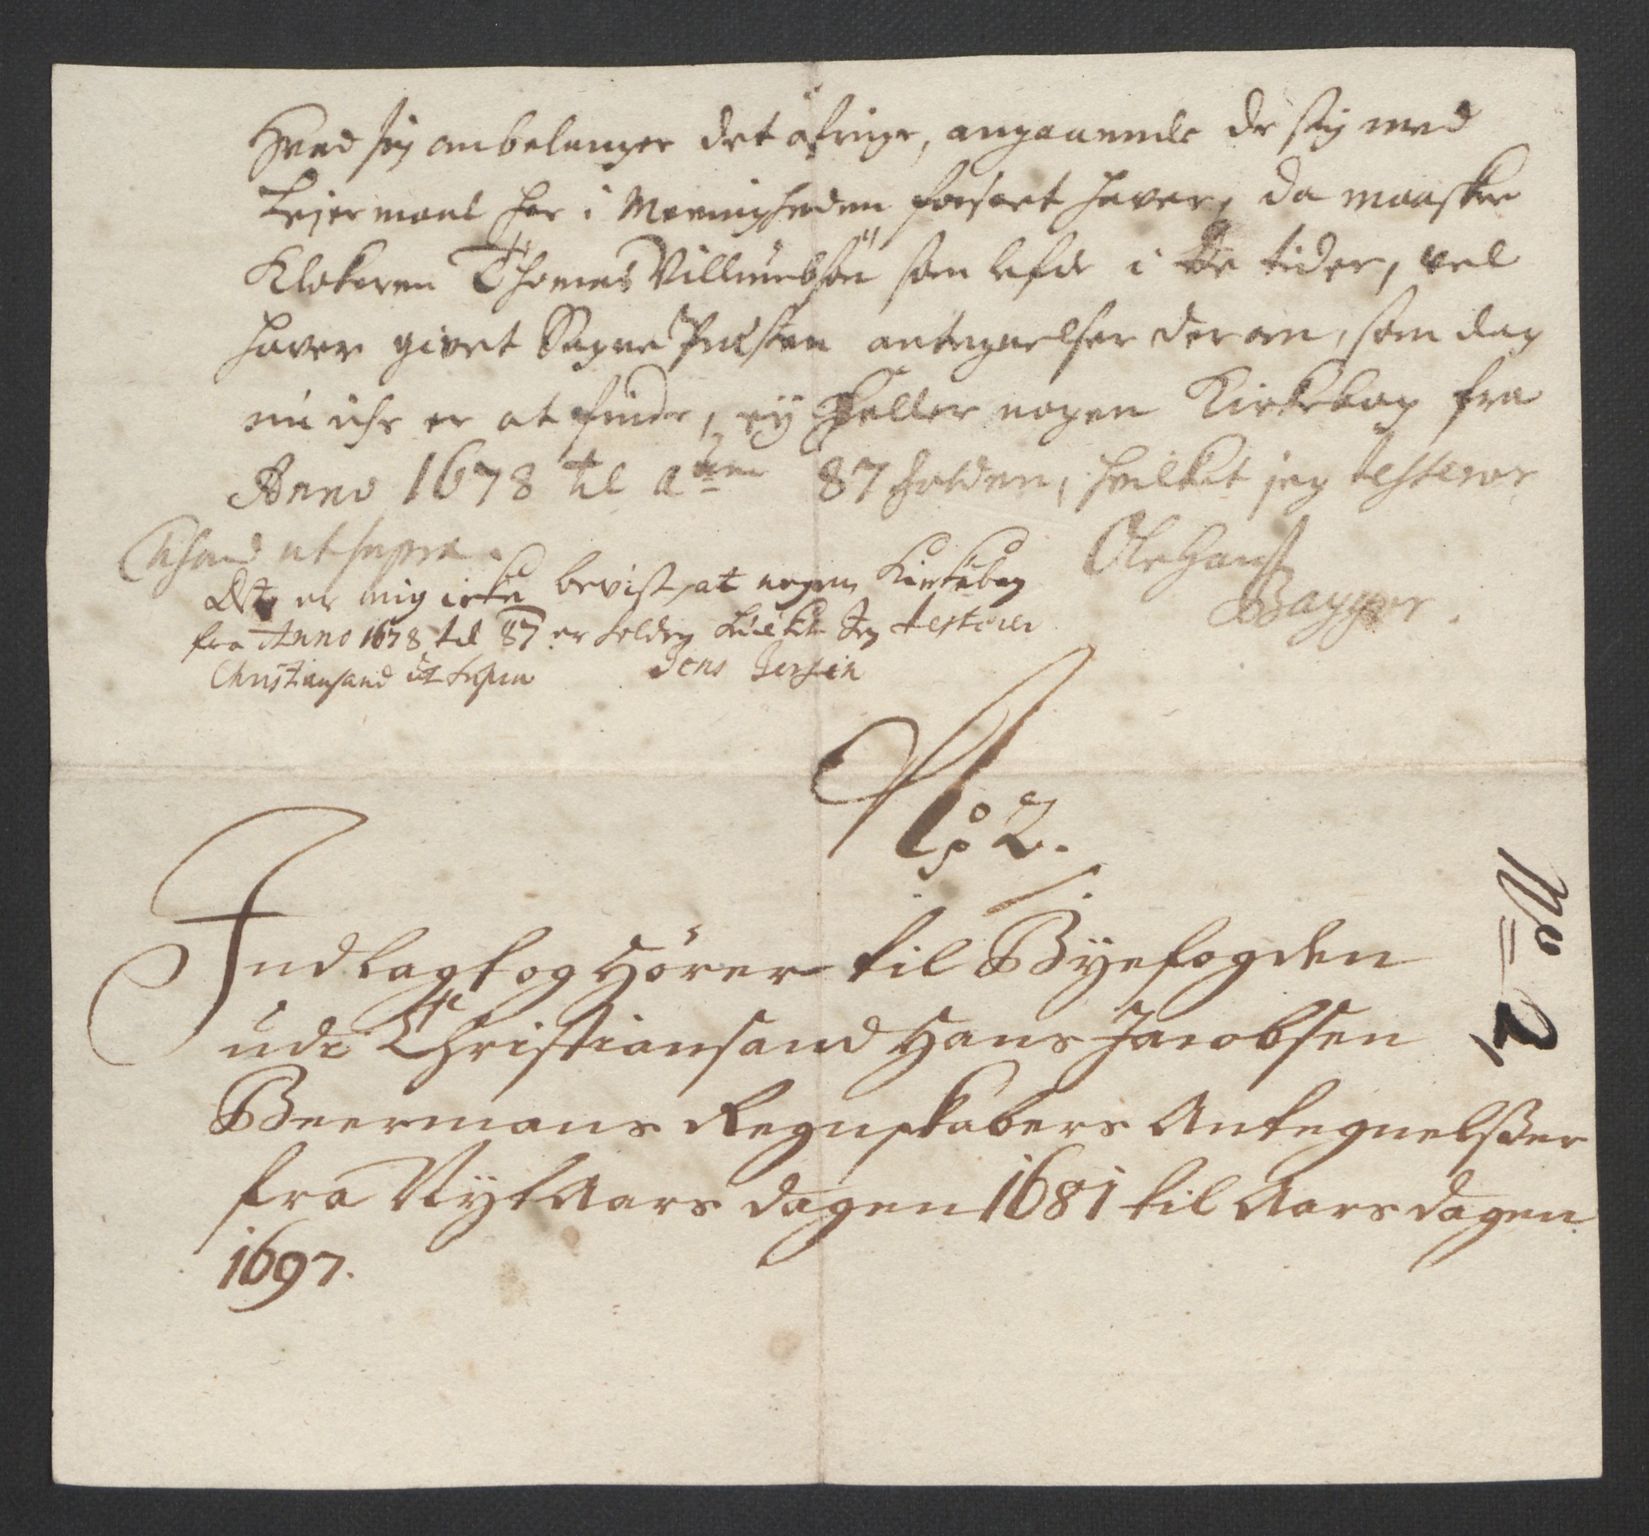 Hvad sig anbelanger det öfrige, angaaende de sig med
Leiermaal her i Meenigheden forseet haver, da maaskee
Klokeren Thomas Villumbsön som lefde i de tider, vel
haver givet Sogne Presten antegnelser der om, som dog
nu iche er at finde, ej heller nogen Kirkebog fra
Anno 1678 til 87 holden, hvilket jeg testerer
Chsand ut supra.
Ole Hans
Bagger.
Det er mig icke bevist, at nogen Kirkebog
fra Anno 1678 til 87 er holden hvilket Jeg testerer
Christiansand ut supra Jens Jensen
No 2.
Indlagt og Hörer til Byefogden
udi Christiansand Hans Jacobsen
Beermans Regnskabers Antegnelsser
fra Nyt Aars dagen 1681 til Aarsdagen
1697.
No 2